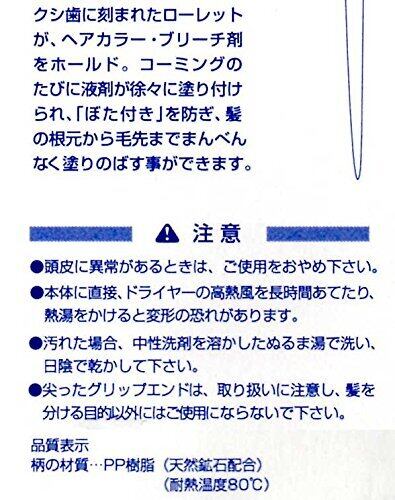 クシ歯に刻まれたローレット
が、ヘアカラー・ブリーチ剤
をホールド。コーミングの
たびに液剤が徐々に塗り付け
られ、「ぼた付き」を防ぎ、髪
の根元から毛先までまんべん
なく塗りのばす事ができます。
⚠ 注意
●頭皮に異常があるときは、ご使用をおやめ下さい。
●本体に直接、ドライヤーの高熱風を長時間あてたり、
熱湯をかけると変形の恐れがあります。
●汚れた場合、中性洗剤を溶かしたぬるま湯で洗い、
日陰で乾かして下さい。
●尖ったグリップエンドは、取り扱いに注意し、髪を
分ける目的以外にはご使用にならないで下さい。
品質表示
柄の材質…PP樹脂（天然鉱石配合）
（耐熱温度80℃）